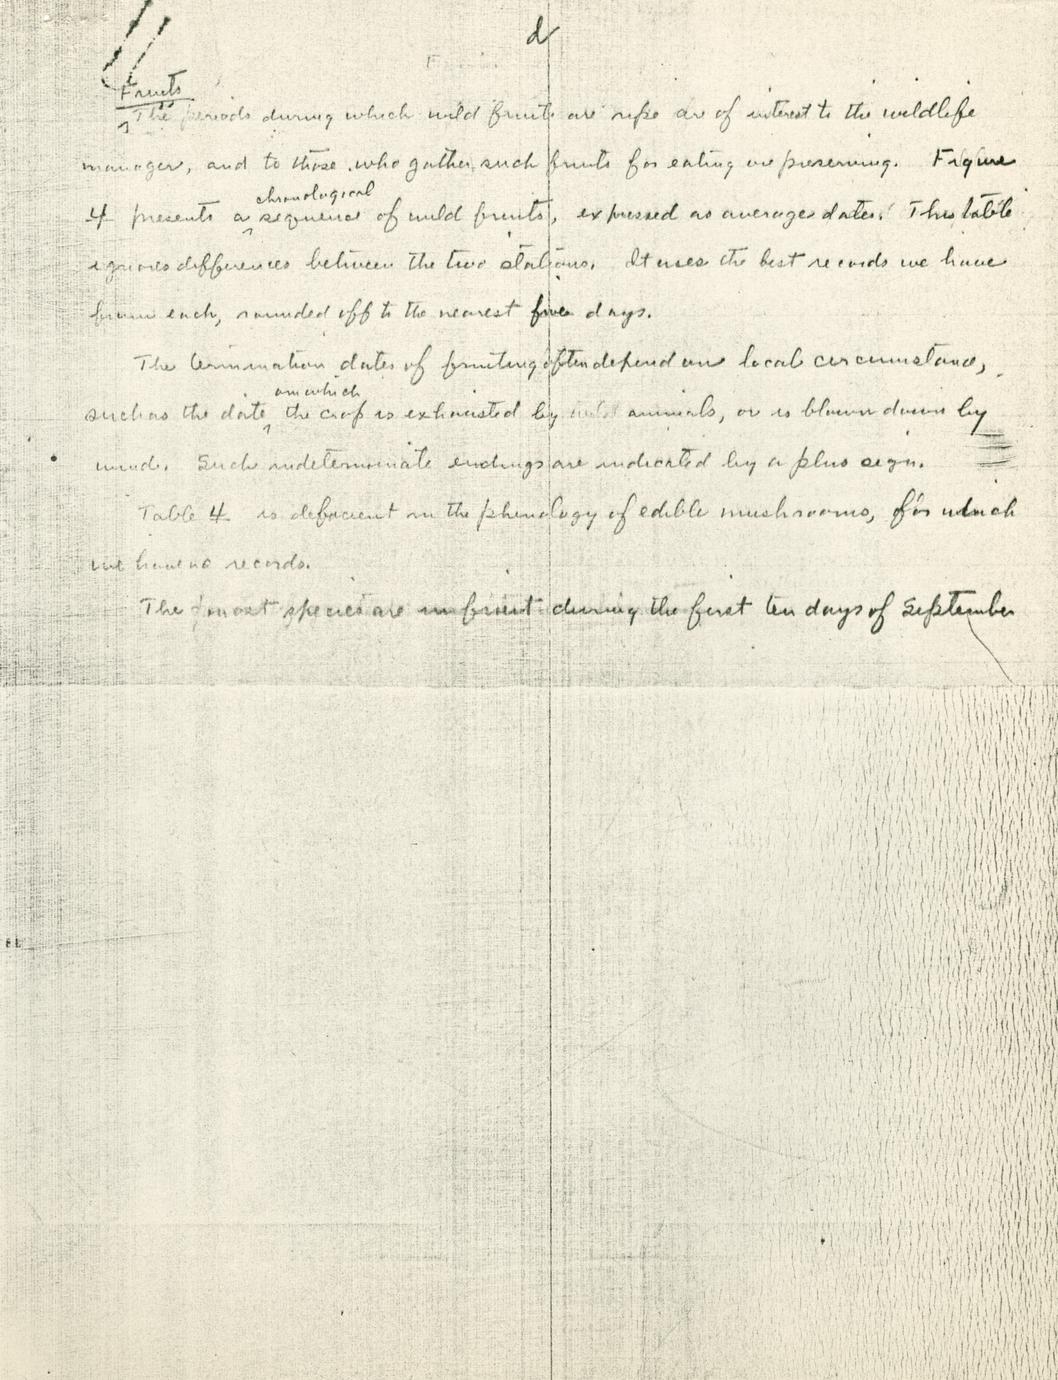 d
Fruits
The periods during which wild fruits are ripe are of interest to the wildlife
manager, and to those who gather such fruits for eating or preserving. Figure
chronological
4 presents a sequence of wild fruits, expressed as average dates. This table
ignores differences between the two stations. It uses the best records we have
from each, rounded off to the nearest five days.
The termination dates of fruiting often depend on local circumstance,
on which
such as the date the crop is exhausted by animals, or is blown down by
wind. Such indeterminate endings are indicated by a plus sign.
Table 4 is deficient in the phenology of edible mushrooms, for which
we have no records.
The most species are in fruit during the first ten days of September